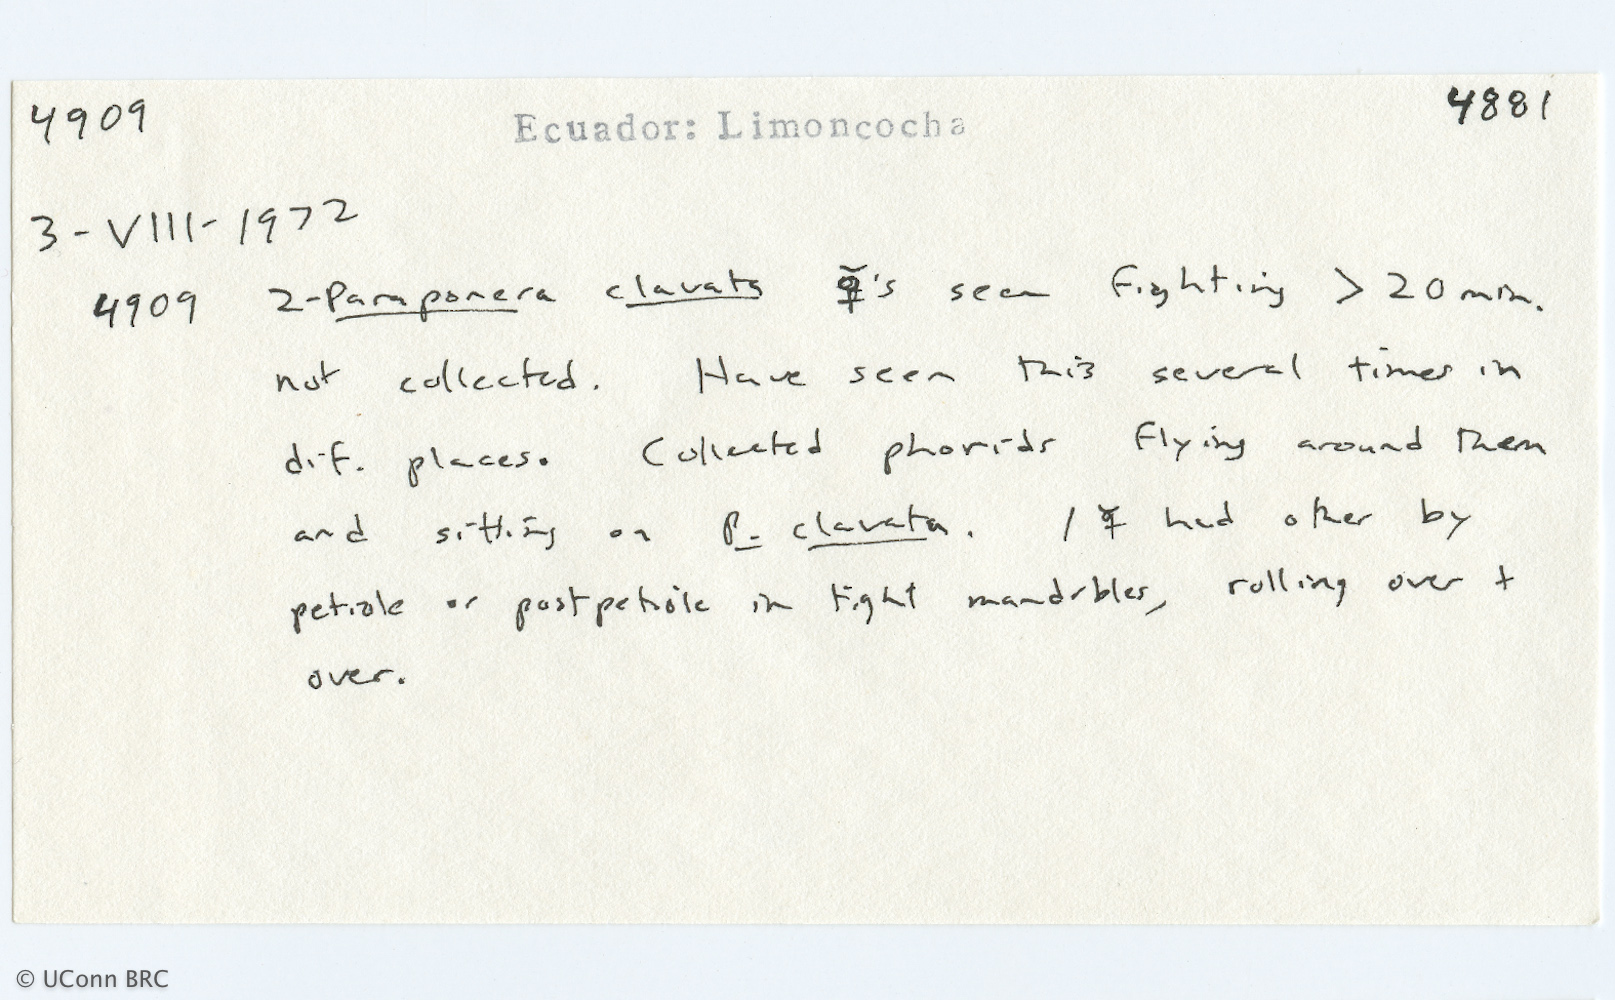 4909 Ecuador: Limoncocha 4881
3-VIII-1972
4909 2-Paraponera clavata ☿'s seen fighting > 20 min.
not collected. Have seen this several times in
dif. places. Collected phorids flying around them
and sitting on P. clavata. 1 ☿ had other by
petiole or postpetiole in tight mandibles, rolling over +
over.
© UConn BRC